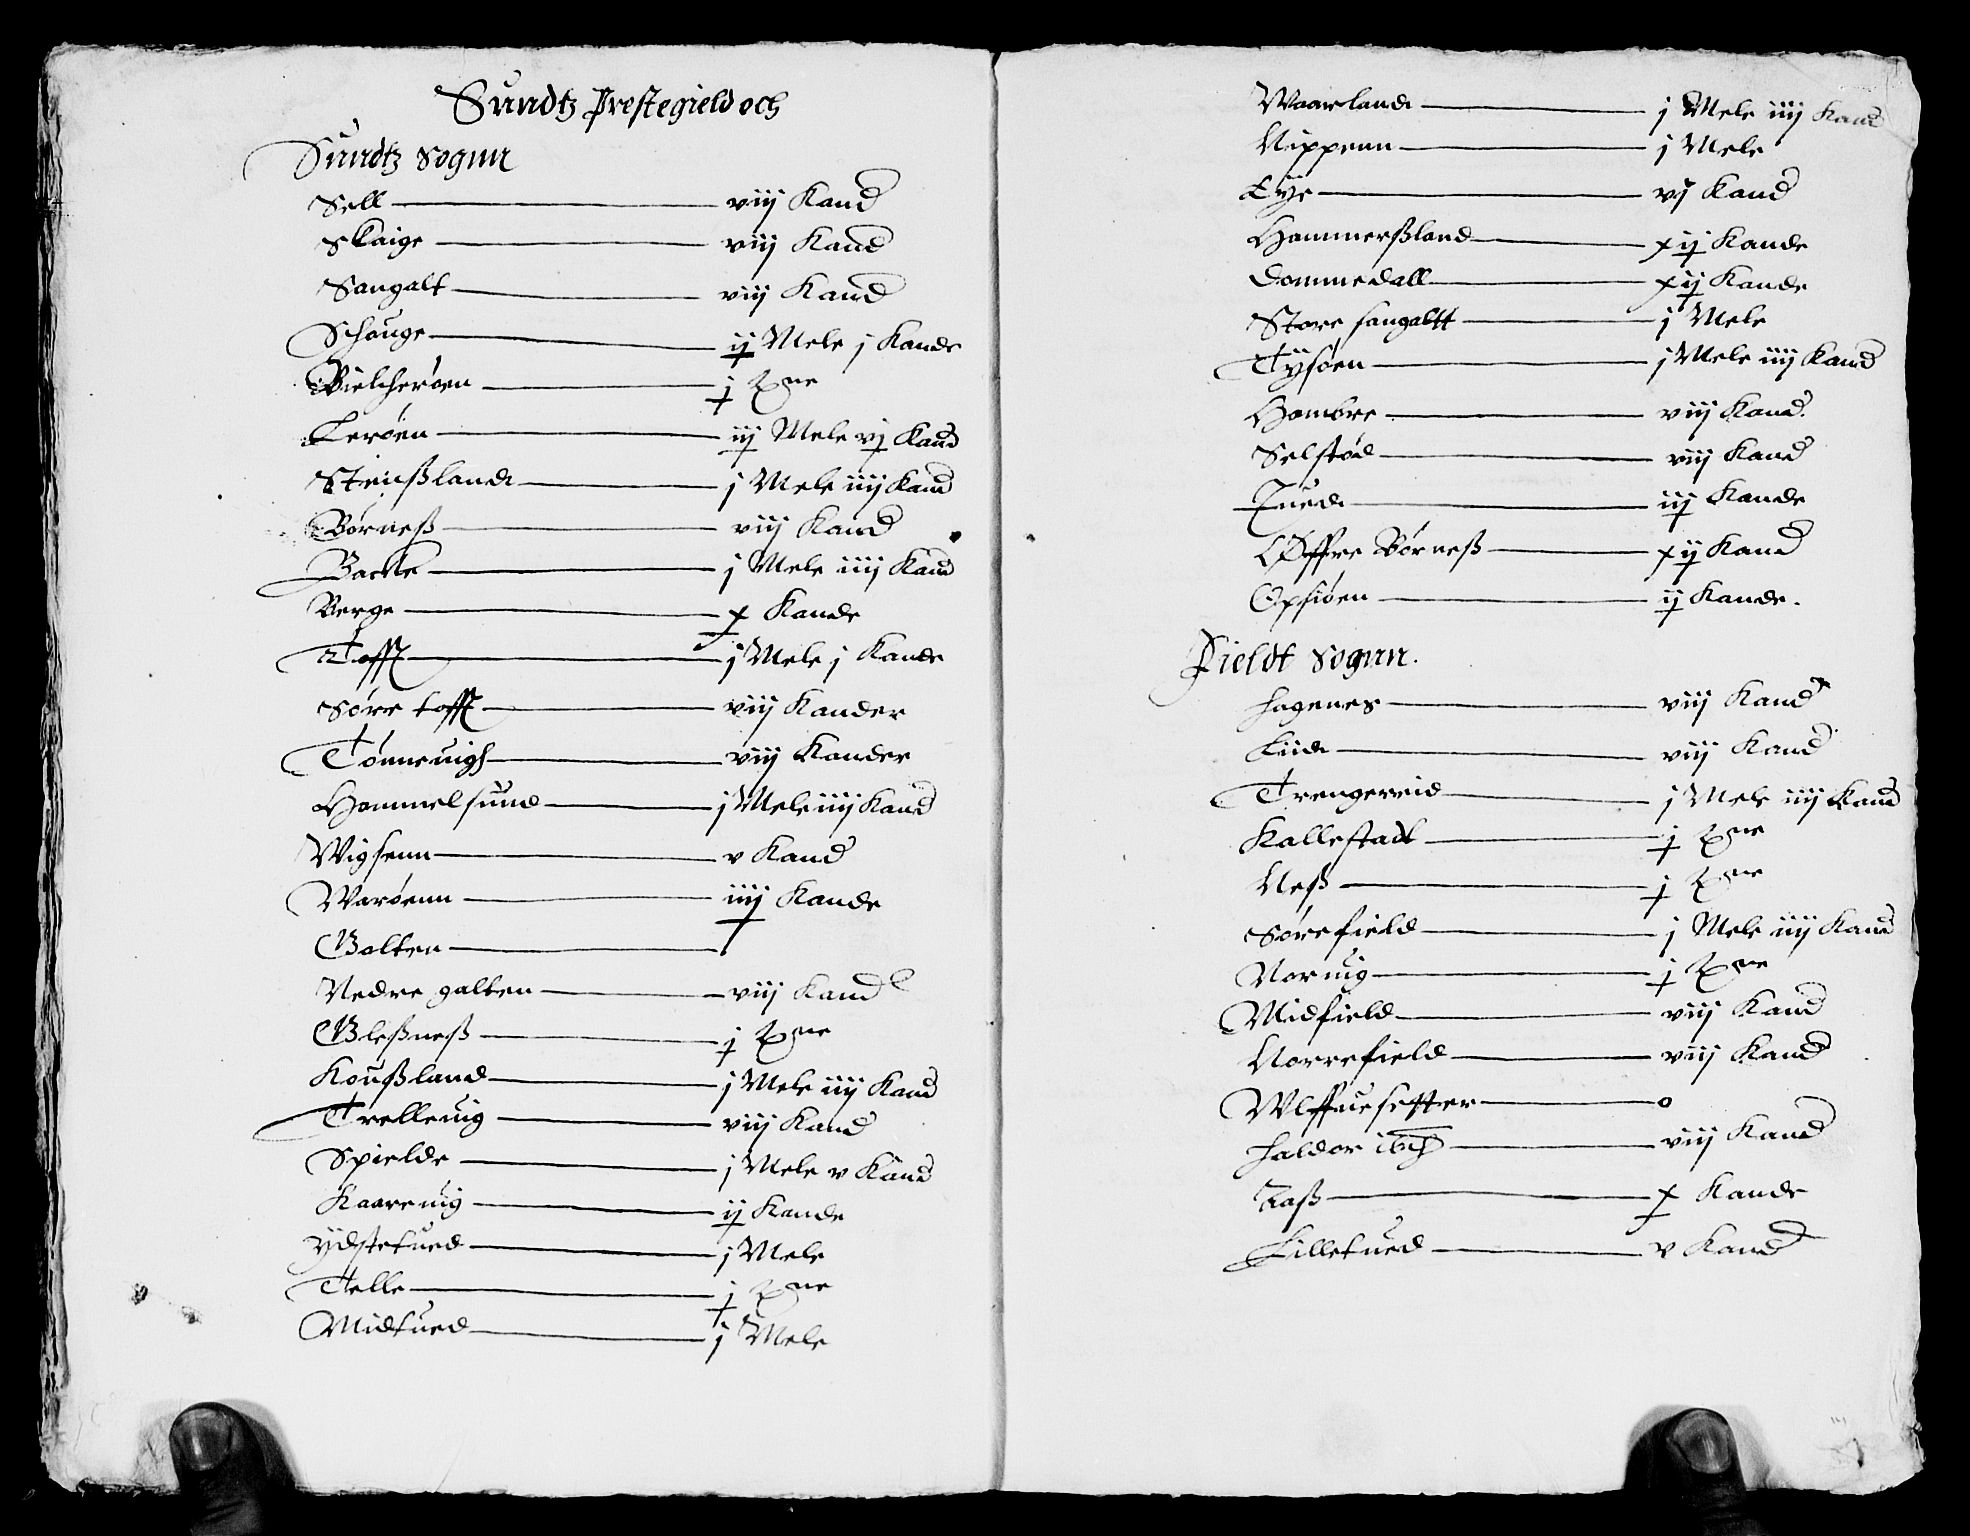 Sundtz Prestegield och
Sundtz Sognn
Sell — viij Kand
Skaige — viij Kand
Sangalt — viij Kand
Schouge — ij Mele j Kande
Bielcherøen — j
Lerøen — iij Mele vj Kand
Steinßlande — j Mele iiij Kand
Børneß — viij Kand
Backe — j Mele iiij Kand
Berge — x Kande
Tofft — j Mele j Kande
Sørre tofft — viij Kander
Tønneuigh — viij Kander
Hommelsund — j Mele iiij Kand
Wigsenn — v Kand
Warøenn — iiij Kande
Golten —
Nedre galten — viij Kand
Gleßneß — j
Koußland — j Mele iiij Kand
Trelleuig — viij Kand
Spielde — j Mele v Kand
Kaareuig — ij Kande
Ydstetued — j Mele
Telle — j
Midtued — j Mele
Waarlande — j Mele iiij Kand
Nippenn — j Mele
Eye — vj Kand
Hammerßland — xij Kande
Dommedall — xij Kande
Store sangaltt — j Mele
Tysøen — j Mele iiij Kand
Hombre — viij Kand
Selstød — viij Kand
Tuede — iij Kande
Øffre Børneß — xij Kand
Opsiøen — ij Kande.
Fieldt Sognn.
hagenes — viij Kand
Liide — viij Kand
Trengereid — j Mele iiij Kand
Kallestadt — j
Neß — j
Sørefield — j Mele iiij Kand
Noruig — j
Midfield — viij Kand
Norrefield — viij Kand
Wlffuesetter — o
haldor — viij Kand
Raß — x Kande
Lilletued — v Kand